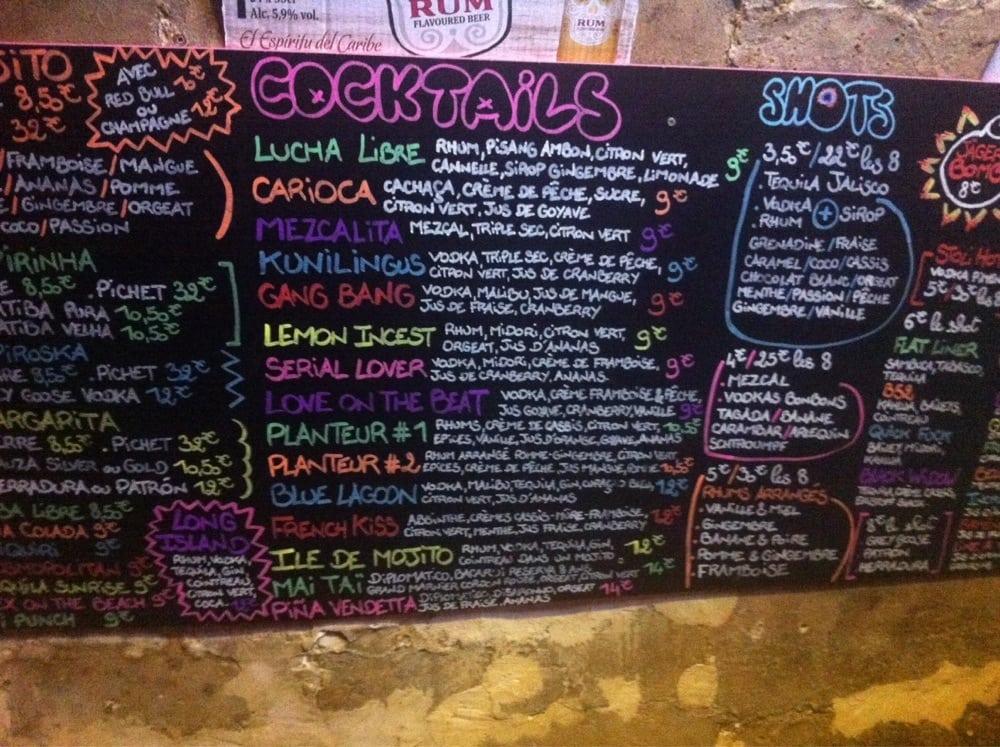 Alc. 5,9% vol.
El Espíritu del Caribe
RUM
FLAVOURED BEER
RUM
SITO
8,50€
32€
AVEC
RED BULL 10€
OU
CHAMPAGNE 12€
/FRAMBOISE/MANGUE
/ANANAS/POMME
/GINGEMBRE/ORGEAT
COCO/PASSION
PIRINHA
8,50€ .PICHET 32€
ATIBA PURA 10,50€
ATIBA VELHA 10,50€
PIROSKA
8,50€ .PICHET 32€
Y GOOSE VODKA 12€
ARGARITA
ERRE 8,50€ .PICHET 32€
AUZA SILVER OU GOLD 10,50€
ERRADURA OU PATRÓN 12€
BA LIBRE 8,50€
A COLADA 9€
IQUIRI 9€
OSMOPOLITAN 9€
EQUILA SUNRISE 9€
X ON THE BEACH 9€
I PUNCH 9€
LONG
ISLAND
RHUM, VODKA,
TEQUILA, GIN,
COINTREAU,
CITRON VERT,
COCA.
COCKTAILS
LUCHA LIBRE RHUM, PISANG AMBON, CITRON VERT,
CANNELLE, SIROP GINGEMBRE, LIMONADE 9€
CARIOCA CACHAÇA, CRÈME DE PÊCHE, SUCRE,
CITRON VERT, JUS DE GOYAVE 9€
MEZCALITA MEZCAL, TRIPLE SEC, CITRON VERT 9€
KUNILINGUS VODKA, TRIPLE SEC, CRÈME DE PÊCHE,
CITRON VERT, JUS DE CRANBERRY 9€
GANG BANG VODKA, MALIBU, JUS DE MANGUE,
JUS DE FRAISE, CRANBERRY 9€
LEMON INCEST RHUM, MIDORI, CITRON VERT,
ORGEAT, JUS D'ANANAS 9€
SERIAL LOVER VODKA, MIDORI, CRÈME DE FRAMBOISE,
JUS DE CRANBERRY, ANANAS 9€
LOVE ON THE BEAT VODKA, CRÈME FRAMBOISE & PÊCHE,
JUS GOYAVE, CRANBERRY, VANILLE 9€
PLANTEUR #1 RHUMS, CRÈME DE CASSIS, CITRON VERT,
EPICES, VANILLE, JUS D'ORANGE, GOYAVE, ANANAS 10,50€
PLANTEUR #2 RHUM ARRANGÉ POMME-GINGEMBRE, CITRON VERT
EPICES, CRÈME DE PÊCHE, JUS MANGUE, POMME 10,50€
BLUE LAGOON VODKA, MALIBU, TEQUILA, GIN, CURAÇAO BLEU,
CITRON VERT, JUS D'ANANAS 12€
FRENCH KISS ABSINTHE, CRÈMES CASSIS-MÛRE-FRAMBOISE,
CITRON VERT, MENTHE, JUS FRAISE, CRANBERRY 12€
ILE DE MOJITO RHUM, VODKA, TEQUILA, GIN,
COINTREAU DANS UN MOJITO 12€
MAI TAÏ DIPLOMATICO, BACARDI RESERVA 8 ANS,
GRAND MARNIER CORDON ROUGE, ORGEAT, CITRON VERT 14€
PIÑA VENDETTA DIPLOMATICO, DISARONNO, ORGEAT
JUS DE FRAISE ANANAS 14€
SHOTS
3,50€/22€ les 8
.TEQUILA JALISCO
.VODKA + SIROP
RHUM
GRENADINE/FRAISE
CARAMEL/COCO/CASSIS
CHOCOLAT BLANC/ORGEAT
MENTHE/PASSION/PÊCHE
GINGEMBRE/VANILLE
4€/25€ les 8
.MEZCAL
.VODKAS BONBONS
TAGADA/BANANE
CARAMBAR/ARLEQUIN
SCHTROUMPF
5€/30€ les 8
RHUMS ARRANGÉS
.VANILLE & MIEL
.GINGEMBRE
.BANANE & POIRE
.POMME & GINGEMBRE
.FRAMBOISE
JÄGER
BOMB
8€
VODKA
6€ le shot
FLAT LINER
SAMBUCA, TABASCO,
TEQUILA
B52
KAHLUA, BAILEYS
COINTREAU
QUICK FUCK
BAILEYS, MIDORI,
BLACK WIDOW
8€ le shot
GREY GOOSE
PATRÓN
HERRADURA